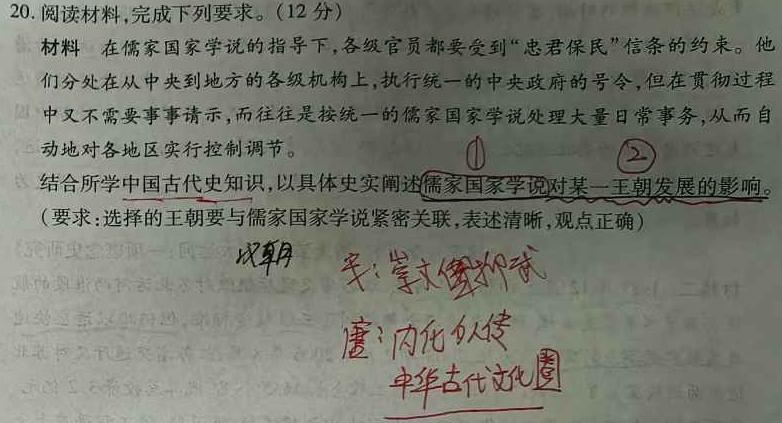 20. 阅读材料,完成下列要求。(12分)
材料　在儒家国家学说的指导下,各级官员都要受到“忠君保民”信条的约束。他
们分处在从中央到地方的各级机构上,执行统一的中央政府的号令,但在贯彻过程
中又不需要事事请示,而往往是按统一的儒家国家学说处理大量日常事务,从而自
动地对各地区实行控制调节。
① ②
结合所学中国古代史知识,以具体史实阐述儒家国家学说对某一王朝发展的影响。
(要求:选择的王朝要与儒家国家学说紧密关联,表述清晰,观点正确)
汉朝
宋:崇文抑武
唐:内化外传
中华古代文化圈